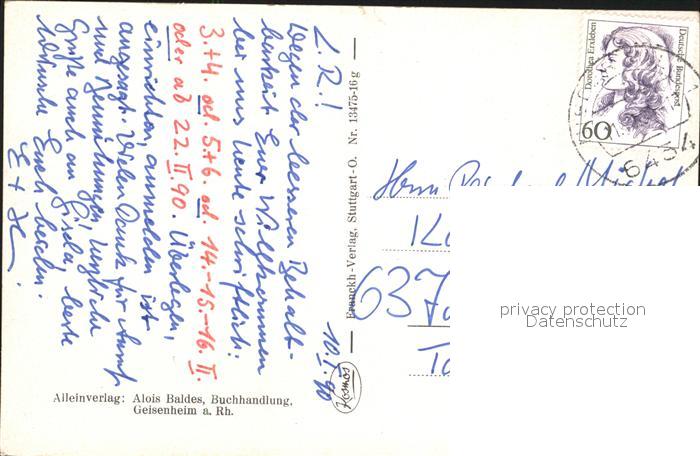 10.I.90
L. R.!
Wegen der besseren Behalt-
barkeit Euer Willkommen
bei uns heute schriftlich:
3.+4. od. 5+6. od. 14.-15.-16. II.
oder ab 22. II. 90. Überlegen,
einrichten, anmelden ist
angesagt. Vielen Dank für Anruf
und Bemühungen, herzliche
Grüße auch an Gisela, beste
Wünsche Euch beiden.
E +
Alleinverlag: Alois Baldes, Buchhandlung,
Geisenheim a. Rh.
Franckh-Verlag, Stuttgart-O. Nr. 13475-16g
Kosmos
Dorothea Erxleben
Deutsche Bundespost
60
Herrn
637
privacy protection
Datenschutz